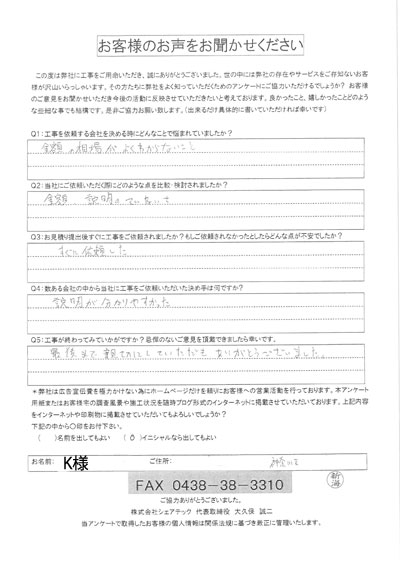 お客様のお声をお聞かせください
この度は弊社に工事をご用命いただき、誠にありがとうございました。世の中には弊社の存在やサービスをご存知ないお客
様が沢山いらっしゃいます。その方たちに弊社をよく知っていただくためのアンケートにご協力いただけるでしょうか? お客様
のご意見をお聞かせいただき今後の活動に反映させていただきたいと考えております。良かったこと、嬉しかったことどのよう
な些細な事でも結構です。是非お願い致します。(出来るだけ具体的に書いていただければ幸いです)
Q1:工事を依頼する会社を決める時にどんなことで悩まれていましたか?
金額の相場がよくわからないこと
Q2:当社にご依頼いただく際にどのような点を比較・検討されましたか?
金額 説明のていねいさ
Q3:お見積り提出後すぐに工事をご依頼されましたか?もしご依頼されなかったとしたらどんな点が不安でしたか?
すぐに依頼した
Q4:数ある会社の中から当社に工事をご依頼いただいた決め手は何ですか?
説明が分かりやすかった
Q5:工事が終わってみていかがですか?忌憚のないご意見を頂戴できましたら幸いです。
最後まで親切にしていただき ありがとうございました。
*弊社は広告宣伝費を極力かけない為にホームページだけを頼りにお客様への営業活動を行っております。本アンケート
用紙またはお客様宅の調査風景や施工状況を随時ブログ形式のインターネットに掲載させていただいております。上記内容
をインターネットや印刷物に掲載させていただいてもよろしいでしょうか?
下記の中から〇印をお付け下さい。
( )名前を出してもよい (O)イニシャルなら出してもよい
お名前: K様 ご住所:
FAX 0438-38-3310
ご協力ありがとうございました。
株式会社シェアテック 代表取締役 大久保 誠二
当アンケートで取得したお客様の個人情報は関係法規に基づき厳正に管理いたします。